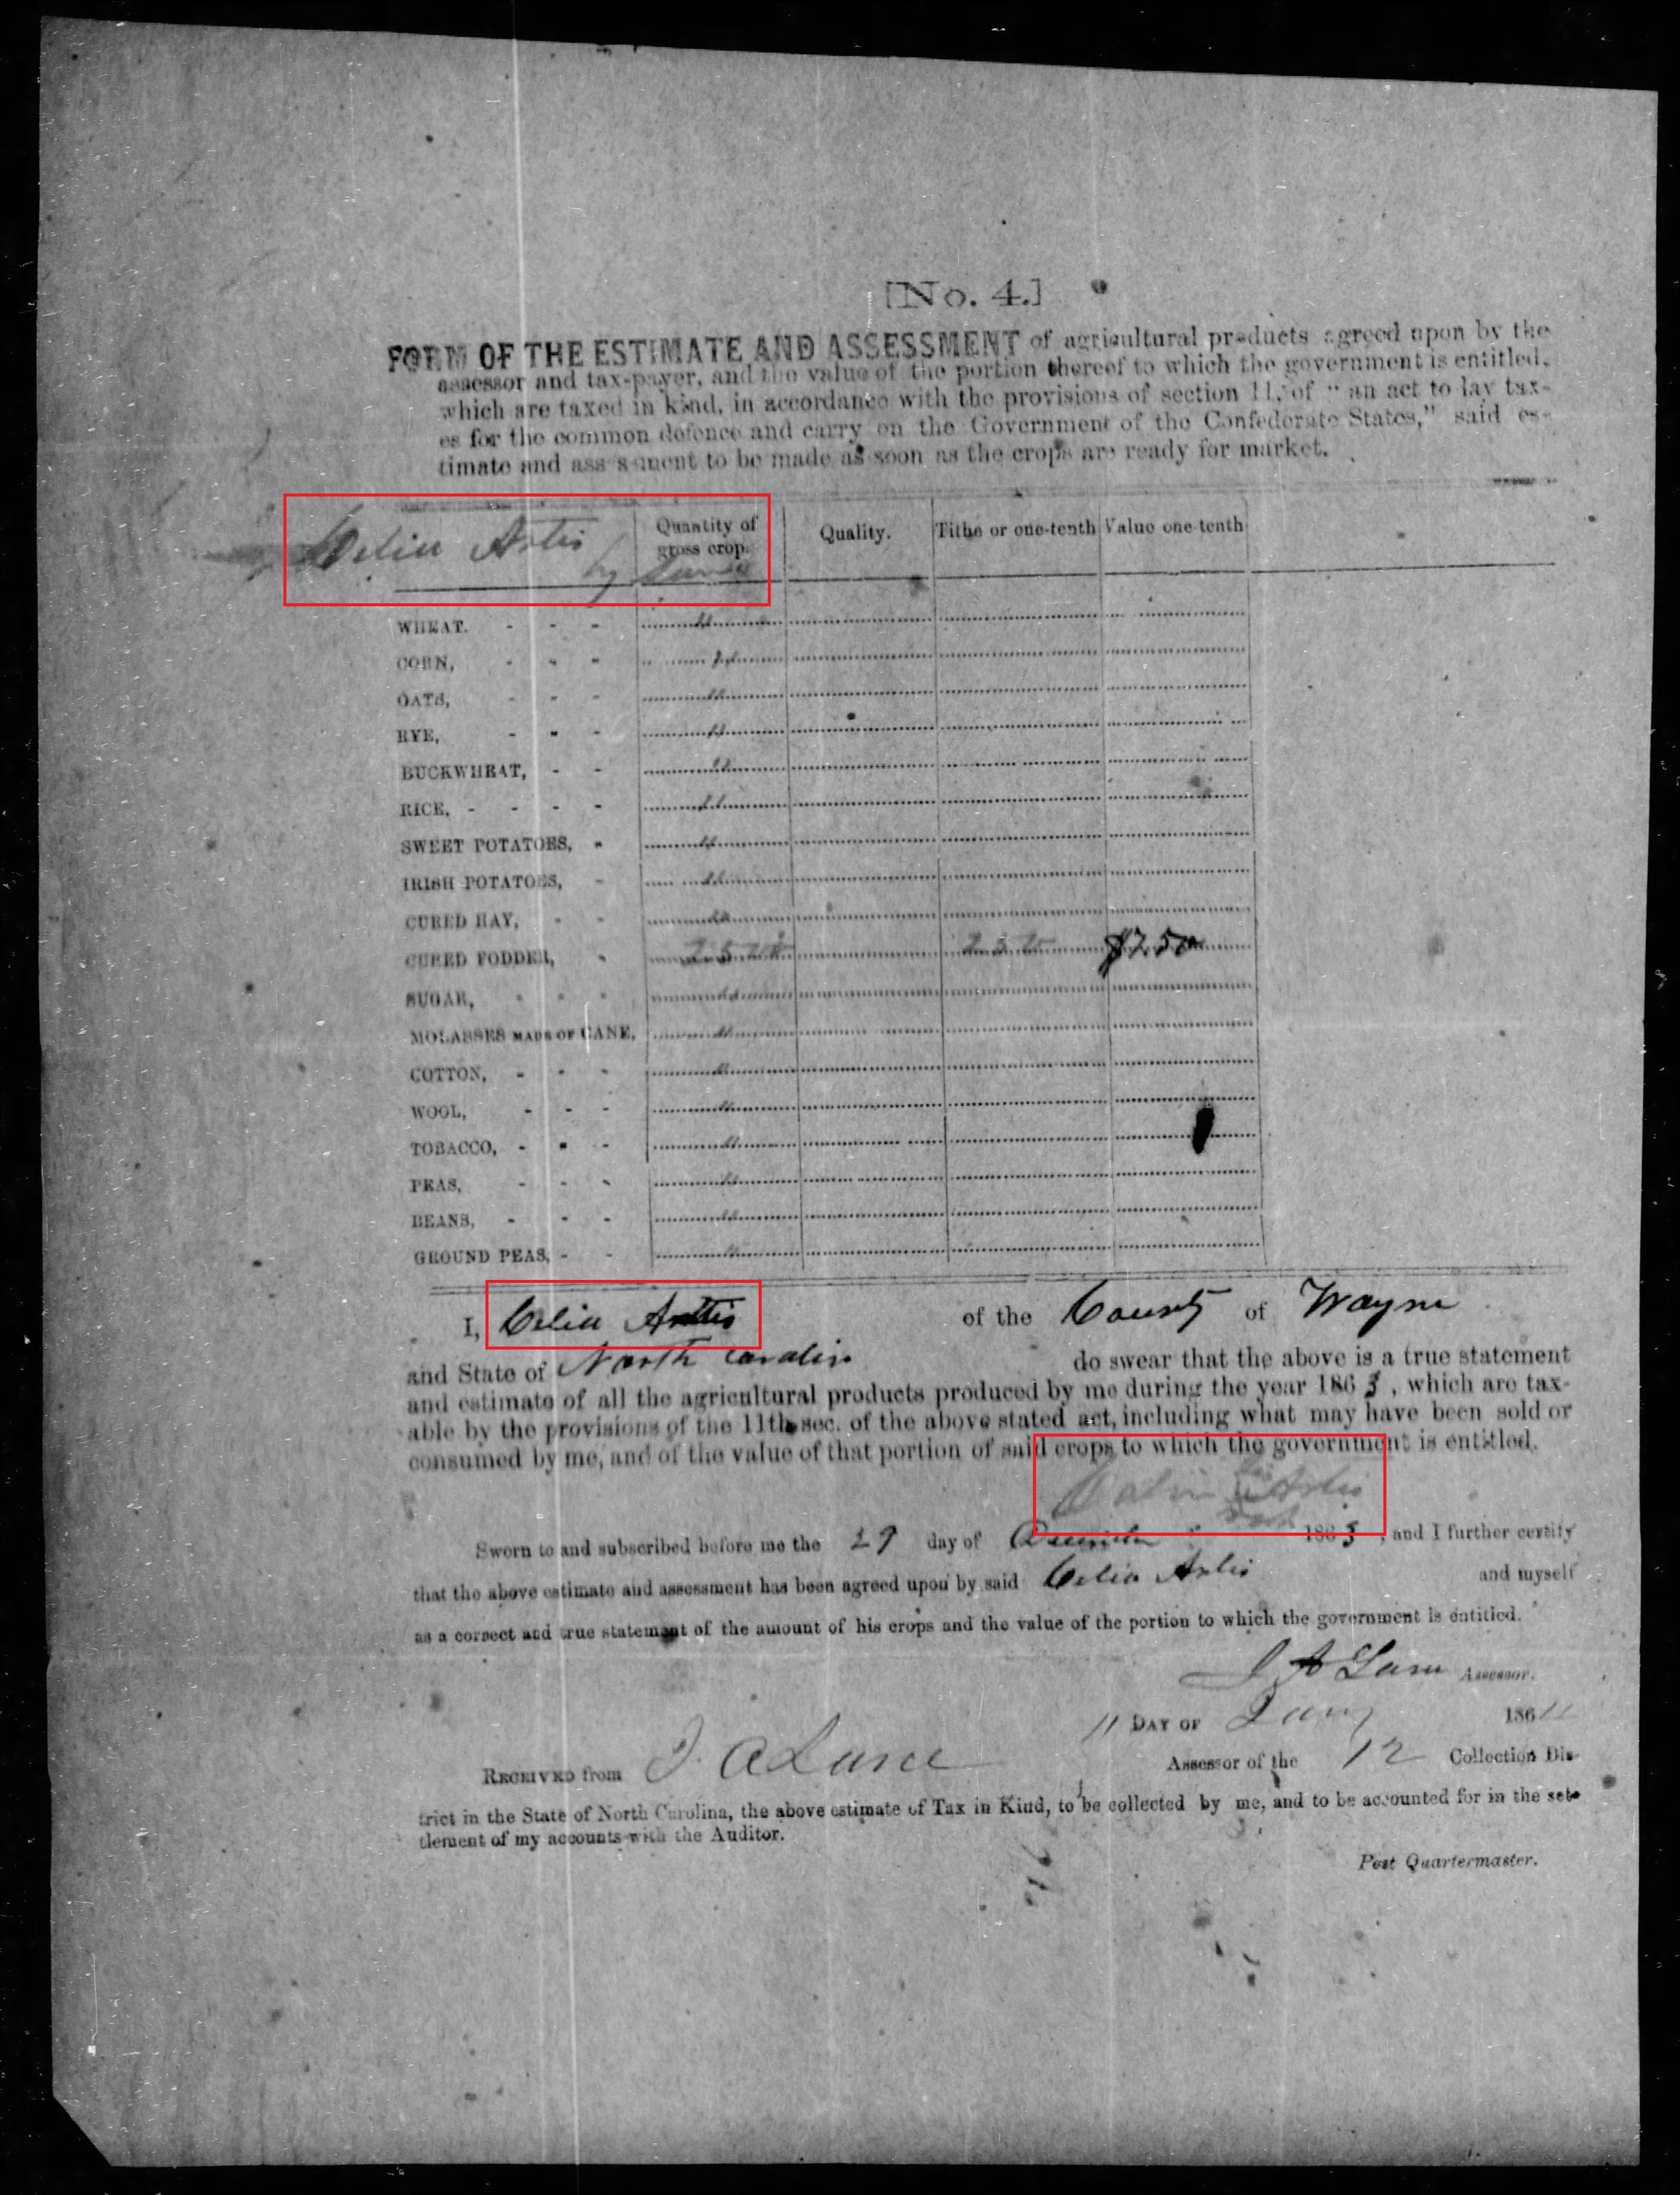 [No. 4.]
FORM OF THE ESTIMATE AND ASSESSMENT of agricultural products agreed upon by the
assessor and tax-payer, and the value of the portion thereof to which the government is entitled,
which are taxed in kind, in accordance with the provisions of section 11, of "an act to lay tax-
es for the common defence and carry on the Government of the Confederate States," said es-
timate and ass s ment to be made as soon as the crops are ready for market.
Celia Artis
by
Quantity of gross crop. Quality. Tithe or one-tenth Value one-tenth
WHEAT. - - -
CORN, - - -
OATS, - - -
RYE, - - -
BUCKWHEAT, - -
RICE, - - - -
SWEET POTATOES, -
IRISH POTATOES, -
CURED HAY, - -
CURED FODDER, - $7.50
SUGAR, - - -
MOLASSES MADE OF CANE,
COTTON, - - -
WOOL, - - -
TOBACCO, - - -
PEAS, - - -
BEANS, - - -
GROUND PEAS, - -
I, Celia Arttis of the County of Wayne
and State of North Carolin do swear that the above is a true statement
and estimate of all the agricultural products produced by me during the year 1863, which are tax-
able by the provisions of the 11th sec. of the above stated act, including what may have been sold or
consumed by me, and of the value of that portion of said crops to which the government is entitled.
Artis
Sworn to and subscribed before me the 29 day of December 1863, and I further certify
that the above estimate and assessment has been agreed upon by said Celia Artis and myself
as a correct and true statement of the amount of his crops and the value of the portion to which the government is entitled.
J A Lane Assessor.
11 DAY OF Jany 1864
RECEIVED from J. A Lane Assessor of the 12 Collection Dis-
trict in the State of North Carolina, the above estimate of Tax in Kind, to be collected by me, and to be accounted for in the set-
tlement of my accounts with the Auditor.
Post Quartermaster.